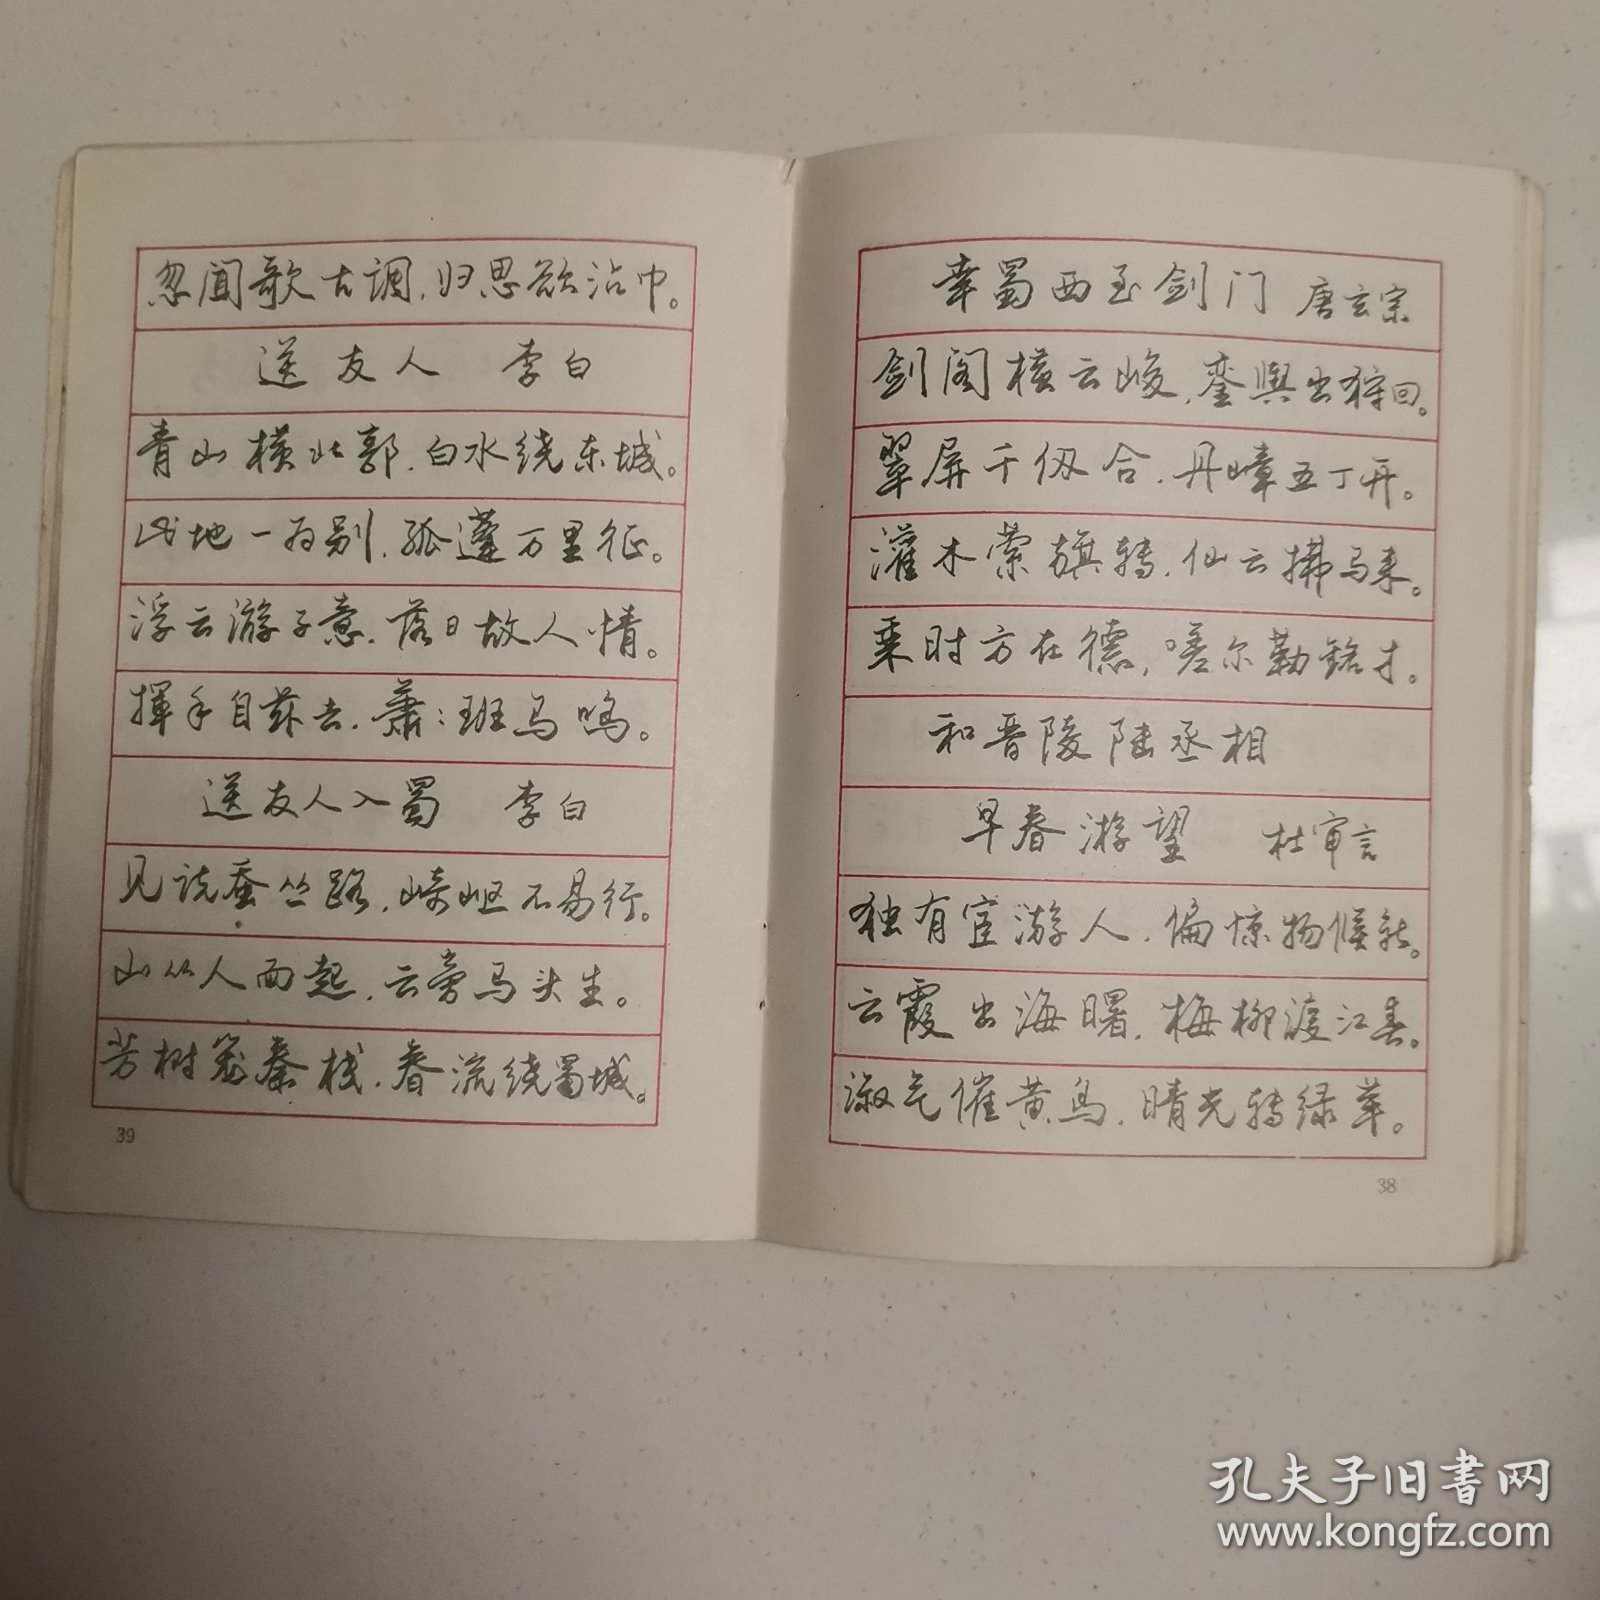 幸蜀西至剑门 唐玄宗
剑阁横云峻，銮舆出狩回。
翠屏千仞合，丹嶂五丁开。
灌木萦旗转，仙云拂马来。
乘时方在德，嗟尔勒铭才。
和晋陵陆丞相
早春游望 杜审言
独有宦游人，偏惊物候新。
云霞出海曙，梅柳渡江春。
淑气催黄鸟，晴光转绿苹。
38
忽闻歌古调，归思欲沾巾。
送友人 李白
青山横北郭，白水绕东城。
此地一为别，孤蓬万里征。
浮云游子意，落日故人情。
揮手自兹去，萧:班马鸣。
送友人入蜀 李白
见说蚕丛路，崎岖不易行。
山从人面起，云旁马头生。
芳树笼秦栈，春流绕蜀城。
39
孔夫子旧书网
www.kongfz.com